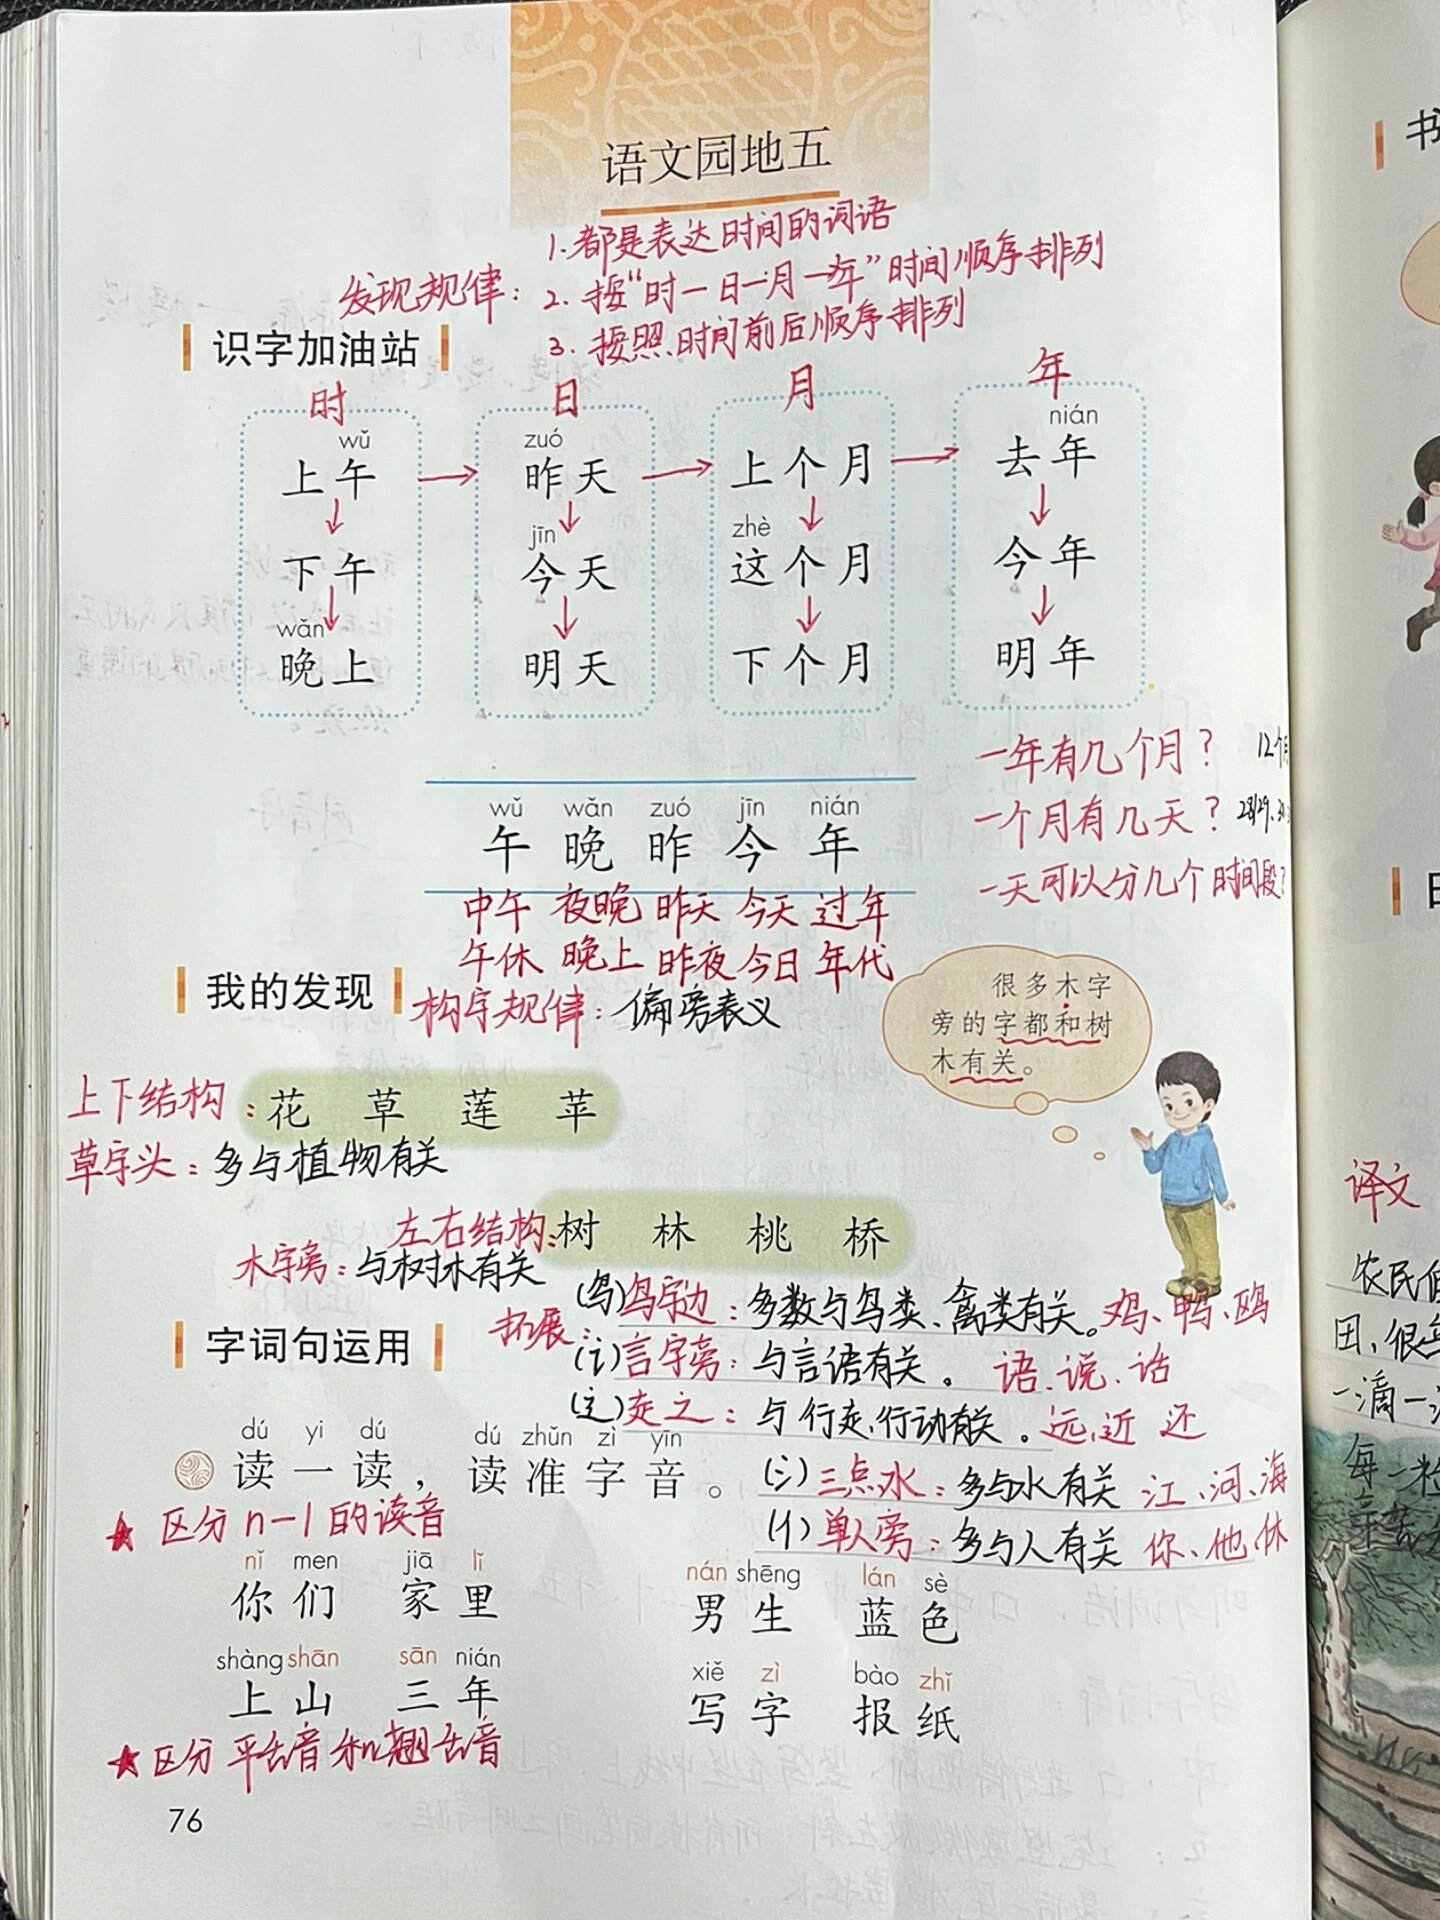 语文园地五
1.都是表达时间的词语
发现规律：2.按“时一日一月一年”时间顺序排列
3.按照时间前后顺序排列
识字加油站
时 日 月 年
wǔ zuó nián
上午 昨天 上个月 去年
jīn zhè
下午 今天 这个月 今年
wǎn
晚上 明天 下个月 明年
一年有几个月？ 12个
wǔ wǎn zuó jīn nián
午 晚 昨 今 年
一个月有几天？ 28/29.
一天可以分几个时间段？
中午 夜晚 昨天 今天 过年
午休 晚上 昨夜 今日 年代
我的发现
构字规律：偏旁表义
很多木字
旁的字都和树
木有关。
上下结构：花 草 莲 苹
草字头：多与植物有关
左右结构：树 林 桃 桥
木字旁：与树木有关
拓展：
(鸟)鸟字边：多数与鸟类、禽类有关。鸡、鸭、鸥
(讠)言字旁：与言语有关。 语、说、话
(辶)走之：与行走、行动有关。远、近 还
(氵)三点水：多与水有关 江、河、海
(亻)单人旁：多与人有关 你、他、休
字词句运用
dú yi dú dú zhǔn zì yīn
读一读，读准字音。
★区分n-l的读音
nǐ men jiā lǐ nán shēng lán sè
你们 家里 男生 蓝色
shàng shān sān nián xiě zì bào zhǐ
上山 三年 写字 报纸
★区分平舌音和翘舌音
76
书
日
译文
农民
田，很
一滴一
每一粒